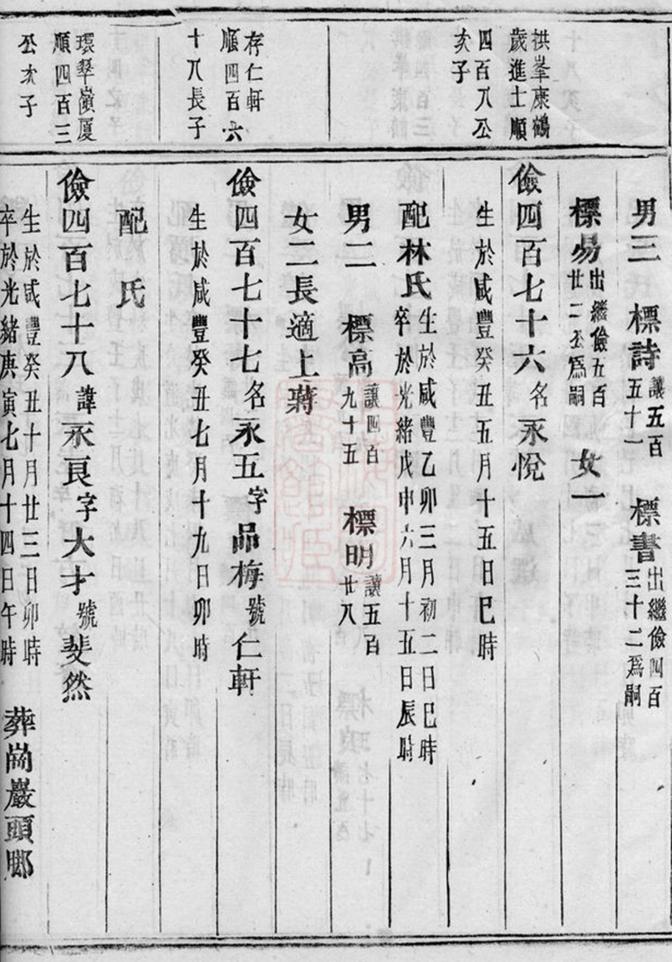 拱峯康鶴
歲進士順
四百八公
亥子
存仁軒
順四百六
十八長子
環翠嶺厦
順四百三
公次子
男三 標詩 讓五百
五十一
標書 出繼儉四百
三十二爲嗣
標易 出繼儉五百
廿二公爲嗣
女一
儉四百七十六名永悅
生於咸豐癸丑五月十五日巳時
配林氏 生於咸豐乙卯三月初二日巳時
卒於光緒戊申六月十五日辰時
男二 標高 讓四百
九十五
標明 讓五百
廿八
女二長適上蔣
儉四百七十七名永五字品梅號仁軒
生於咸豐癸丑七月十九日卯時
配 氏
儉四百七十八諱永良字大才號斐然
生於咸豐癸丑十月廿三日卯時
卒於光緒庚寅七月十四日午時
葬崗巖頭郎